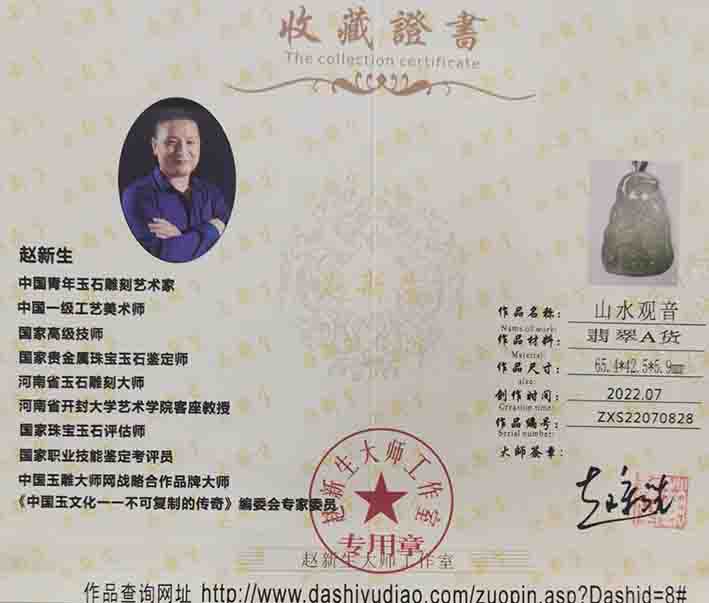 收藏證書
The collection certificate
赵新生
中国青年玉石雕刻艺术家
中国一级工艺美术师
国家高级技师
国家贵金属珠宝玉石鉴定师
河南省玉石雕刻大师
河南省开封大学艺术学院客座教授
国家珠宝玉石评估师
国家职业技能鉴定考评员
中国玉雕大师网战略合作品牌大师
《中国玉文化一一不可复制的传奇》编委会专家委员
作品名称: 山水观音
Name of work:
作品材料: 翡翠A货
Material:
作品尺寸: 65.4*42.5*6.9mm
size:
创作时间: 2022.07
Creation time:
作品编号: ZXS22070828
Serial number:
大師签章:
赵新生大师工作室
专用章
赵新生大师工作室
作品查询网址 http://www.dashiyudiao.com/zuopin.asp?Dashid=8#